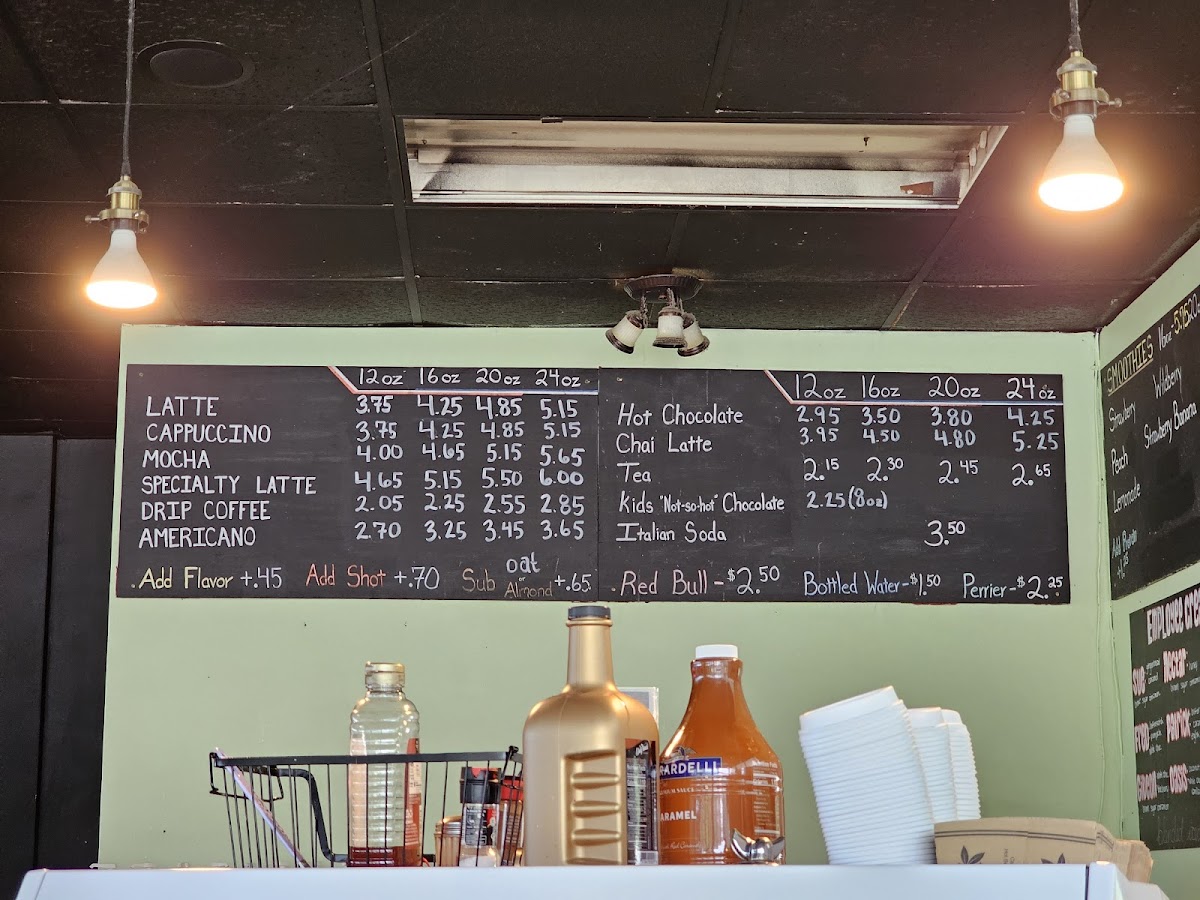 12oz 16oz 20oz 24oz
LATTE 3.75 4.25 4.85 5.15
CAPPUCCINO 3.75 4.25 4.85 5.15
MOCHA 4.00 4.65 5.15 5.65
SPECIALTY LATTE 4.65 5.15 5.50 6.00
DRIP COFFEE 2.05 2.25 2.55 2.85
AMERICANO 2.70 3.25 3.45 3.65
Add Flavor +.45 Add Shot +.70 Sub oat or Almond +.65
12oz 16oz 20oz 24oz
Hot Chocolate 2.95 3.50 3.80 4.25
Chai Latte 3.95 4.50 4.80 5.25
Tea 2.15 2.30 2.45 2.65
Kids "Not-so-hot" Chocolate 2.25 (8oz)
Italian Soda 3.50
Red Bull - $2.50 Bottled Water - $1.50 Perrier - $2.25
SMOOTHIES 16oz - 5.25 20
Strawberry Wildberry
Peach Strawberry Banana
Lemonade
EMPLOYEE
RARDELLI
ARAMEL